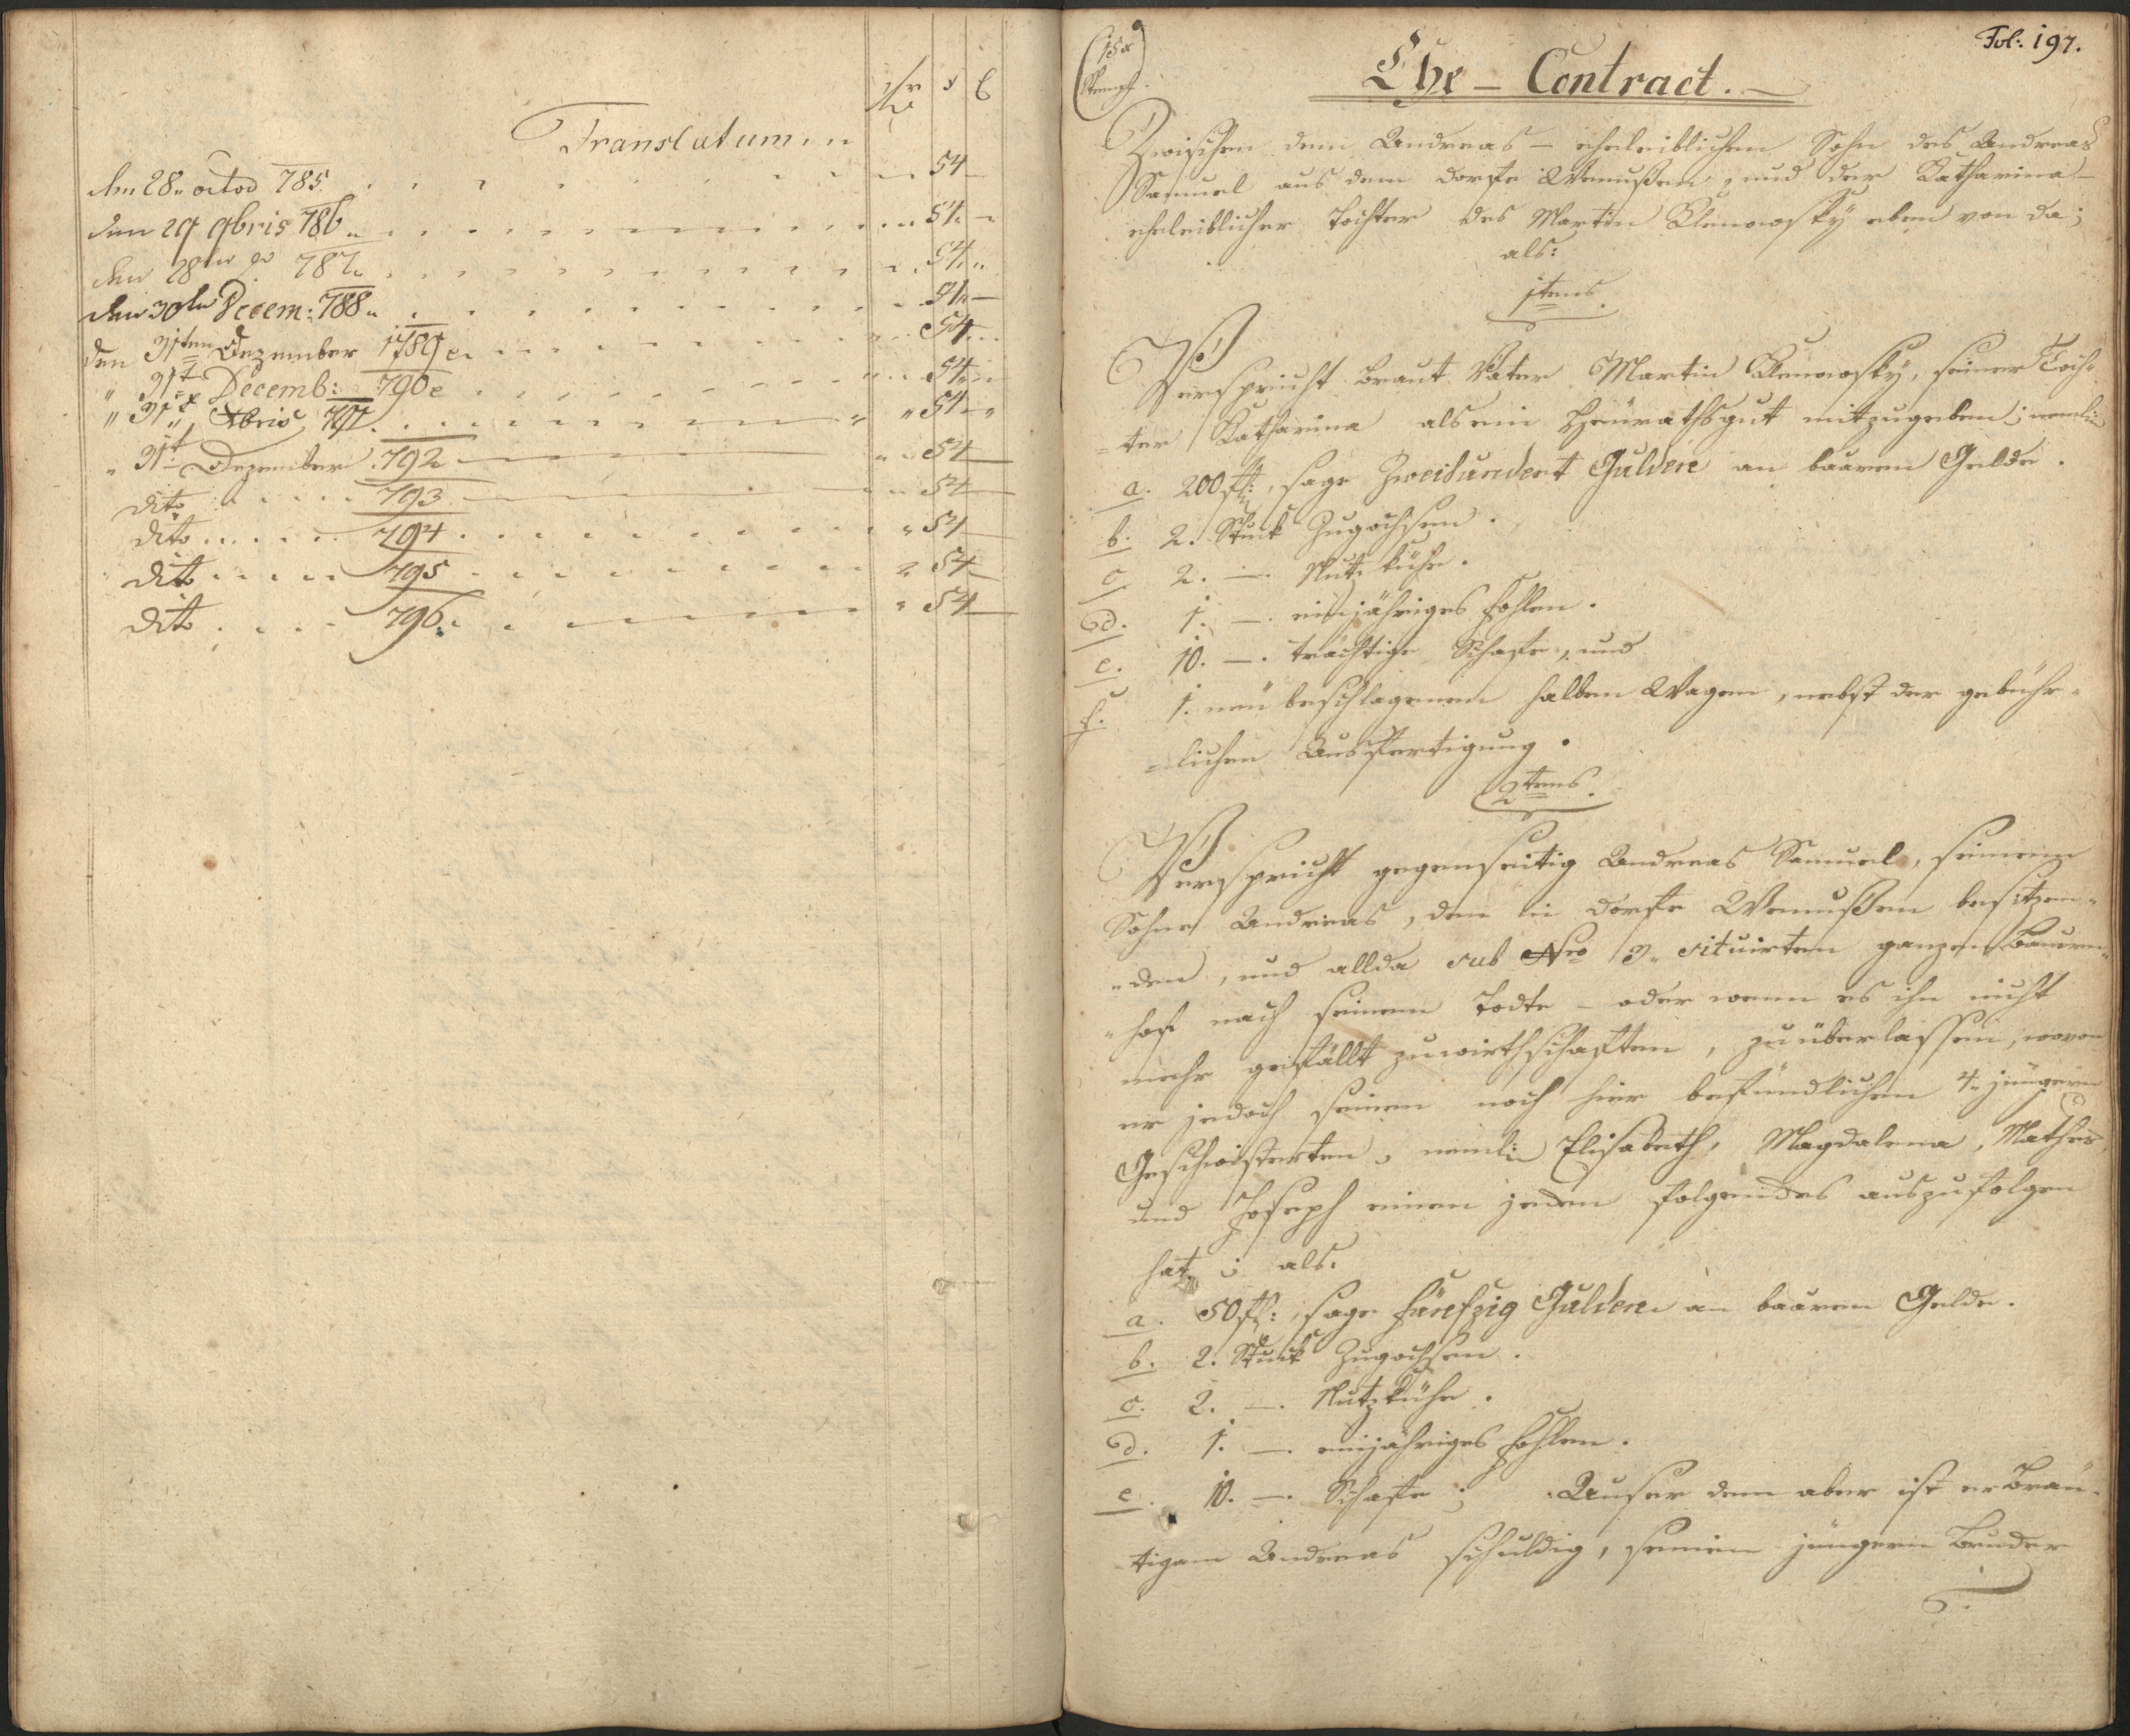 fr x d
Translatum
den 28" octob 785. 54
den 29 9bris 786 54
den 28ten 787 54
den 30ten Decem: 788 54
den 31ten Dezember 1789 54
" 31t Decemb: 790 54
" 31t Xbris 791 " 54 "
" 31t Dezember 792 " 54
dito 793 54
dito 794 " 54
dito 795 54
dito 796 " 54
Fol: 197.
15x
Stempf
Ehe - Contract.
Zwischen dem Andreas - eheleiblichen Sohn des Andreas
Samuel aus dem Dorfe Wemußen, und der Katharina -
eheleiblicher Tochter des Martin Klenowsky eben von da;
als:
1tens
Verspricht Braut Vater Martin Klenowsky, seiner Toch=
=ter Katharina als ein Heurathsgut mitzugeben; nemli:
a. 200 fl:, sage Zweihundert Gulden an baaren Gelde.
b. 2. Stuck Zugochsen.
c. 2. —. Nutz kühe.
d. 1. —. einjähriges Fohlen.
e. 10. —. trächtige Schafe, und
f. 1. neu beschlagenen halben Wagen, nebst der gebühr=
=lichen Ausfertigung.
2tens.
Verspricht gegenseitig Andreas Samuel, seinem
Sohne Andreas, den in Dorfe Wemußen besitzen=
=den, und allda sub Nro 3" situirten ganzen Bauern=
=hof nach seinem Todte - oder wenn es ihn nicht
mehr gefällt zuwirthschaften, zu überlassen, wovon
er jedoch seinen noch hier befündlichen 4" jüngern
Geschwisterten, nemli: Elisabeth, Magdalena, Mathes,
und Joseph einen jeden folgendes auszufolgen
hat; als:
a. 50 fl:, sage Fünfzig Gulden an baaren Gelde.
b. 2. Stuck Zugochsen.
c. 2. —. Nutzkühe.
d. 1. —. einjähriges Fohlen.
e. 10. —. Schafe; Auser dem aber ist er Bräu=
=tigam Andreas schuldig, seinem jüngern Bruder